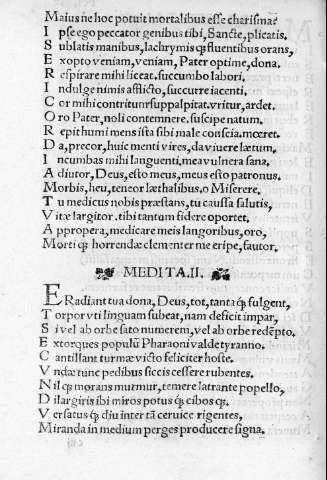 Maius ne hoc potuit mortalibus esse charisma?
I pse ego peccator genibus tibi, Sancte, plicatis.
S ublatis manibus, lachrymis q; fluentibus orans,
E xopto veniam, veniam, Pater optime, dona.
R espirare mihi liceat. succumbo labori,
I ndulge nimis afflicto, succurre iacenti.
C or mihi contritum suppalpitat. vritur, ardet.
O ro Pater, noli contemnere. suscipe natum.
R epit humi mens ista sibi male conscia. mœret.
D a, precor, huic menti vires, da viuere lætum.
I ncumbas mihi languenti, mea vulnera sana.
A diutor, Deus, esto meus, meus esto patronus.
Morbis, heu, teneor læthalibus, o Miserere.
T u medicus nobis præstans, tu caussa salutis,
V itæ largitor. tibi tantum fidere oportet.
A ppropera, medicare meis langoribus, oro,
Morti q; horrendæ clementer me eripe, fautor.
MEDITA. II.
E Radiant tua dona, Deus, tot, tanta q; fulgent,
T orpor vti linguam subeat, nam deficit impar,
S i vel ab orbe sato numerem, vel ab orbe redēpto.
E xtorques populū Pharaoni valde tyranno.
C antillant turmæ victo feliciter hoste.
V ndæ tunc pedibus siccis cessere rubentes.
N il q; morans murmur, temere latrante popello,
D ilargiris ibi miros potus q; cibos q;.
V ersatus q; diu inter tā ceruice rigentes,
Miranda in medium perges producere signa.